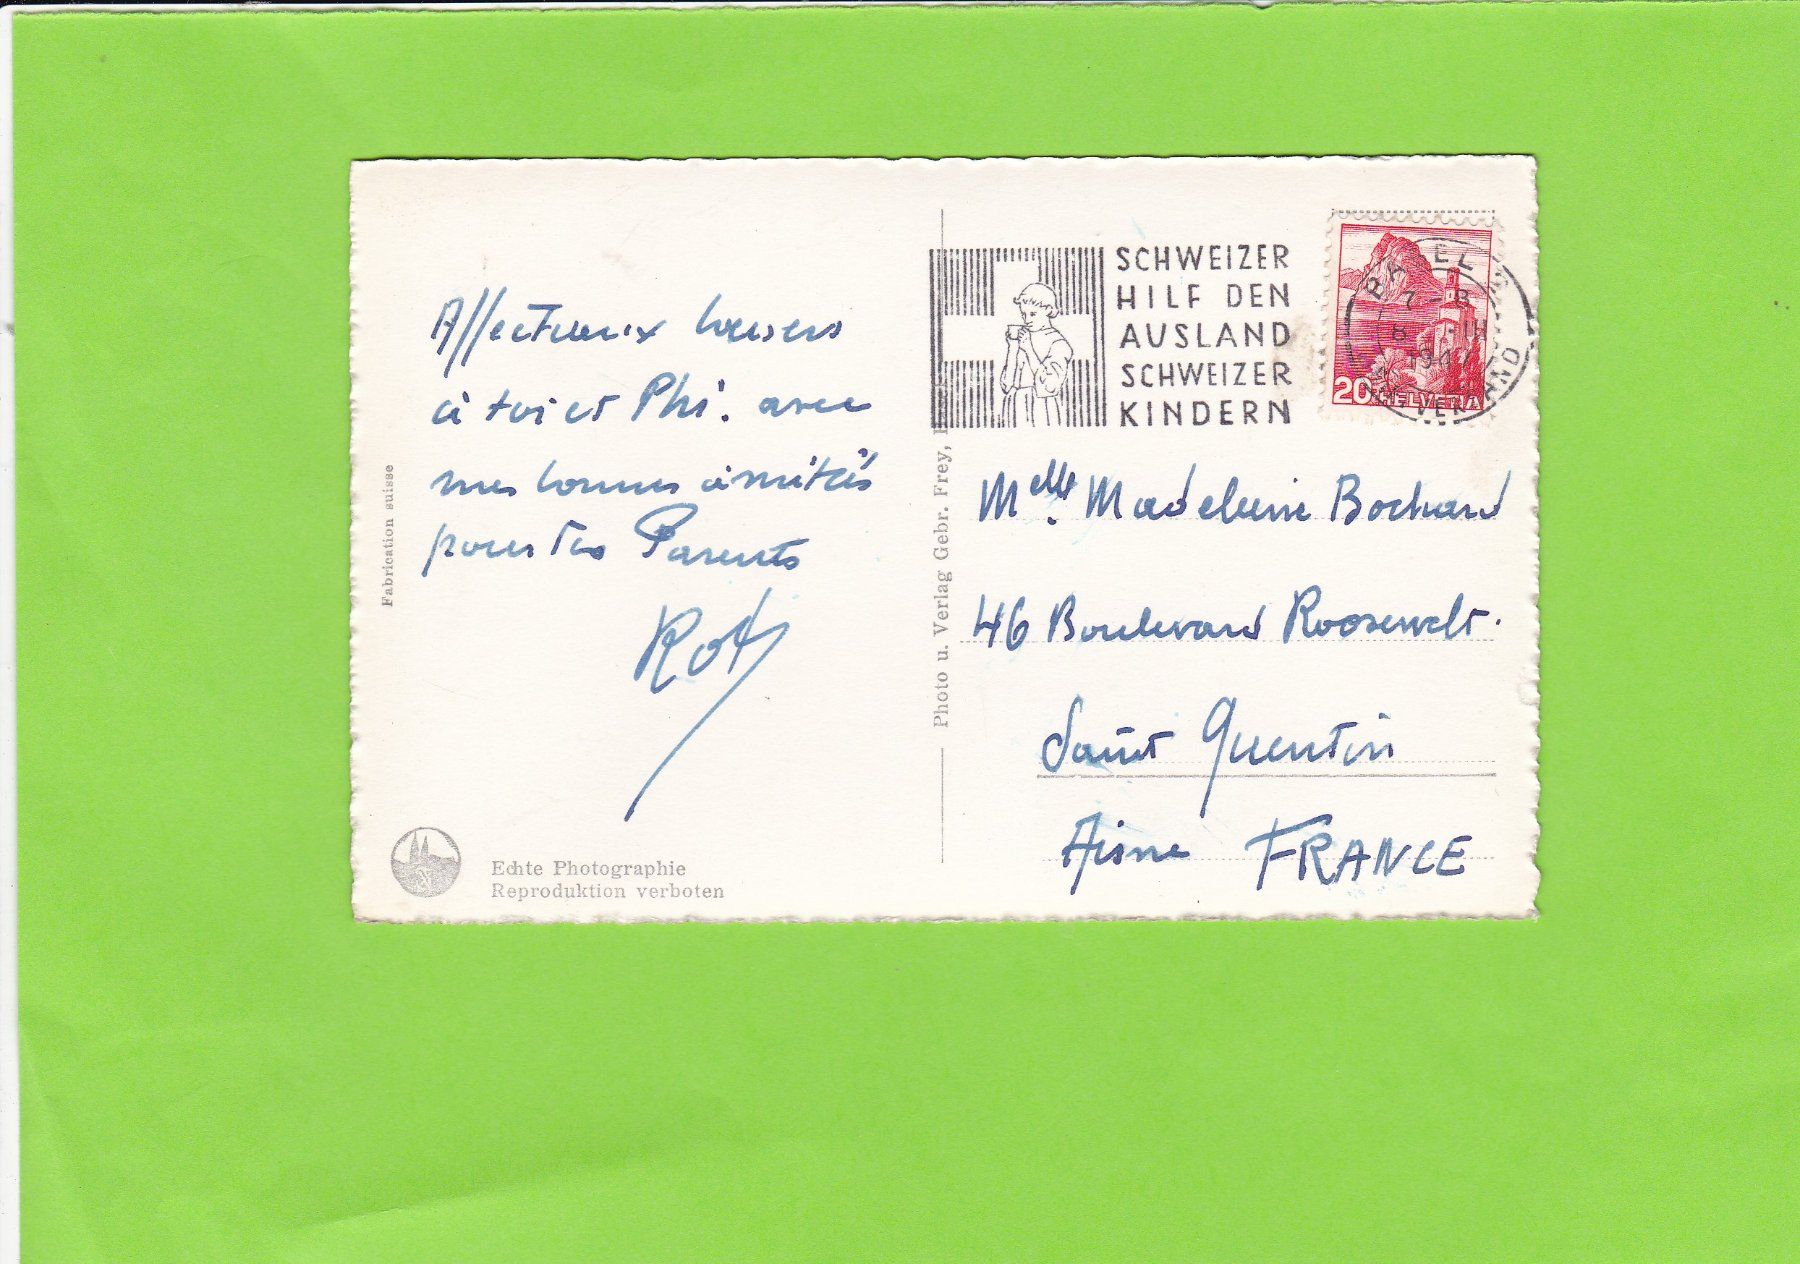 Affectueux baisers
à toi et Phi. avec
mes bonnes amitiés
pour tes Parents
Fabrication suisse
Echte Photographie
Reproduktion verboten
Photo u. Verlag Gebr. Frey,
SCHWEIZER
HILF DEN
AUSLAND
SCHWEIZER
KINDERN
BASEL
7-8
1947
BRIEFVERSAND
20 HELVETIA
Melle Madeleine Bochard
46 Boulevard Roosevelt.
Saint Quentin
Aisne FRANCE